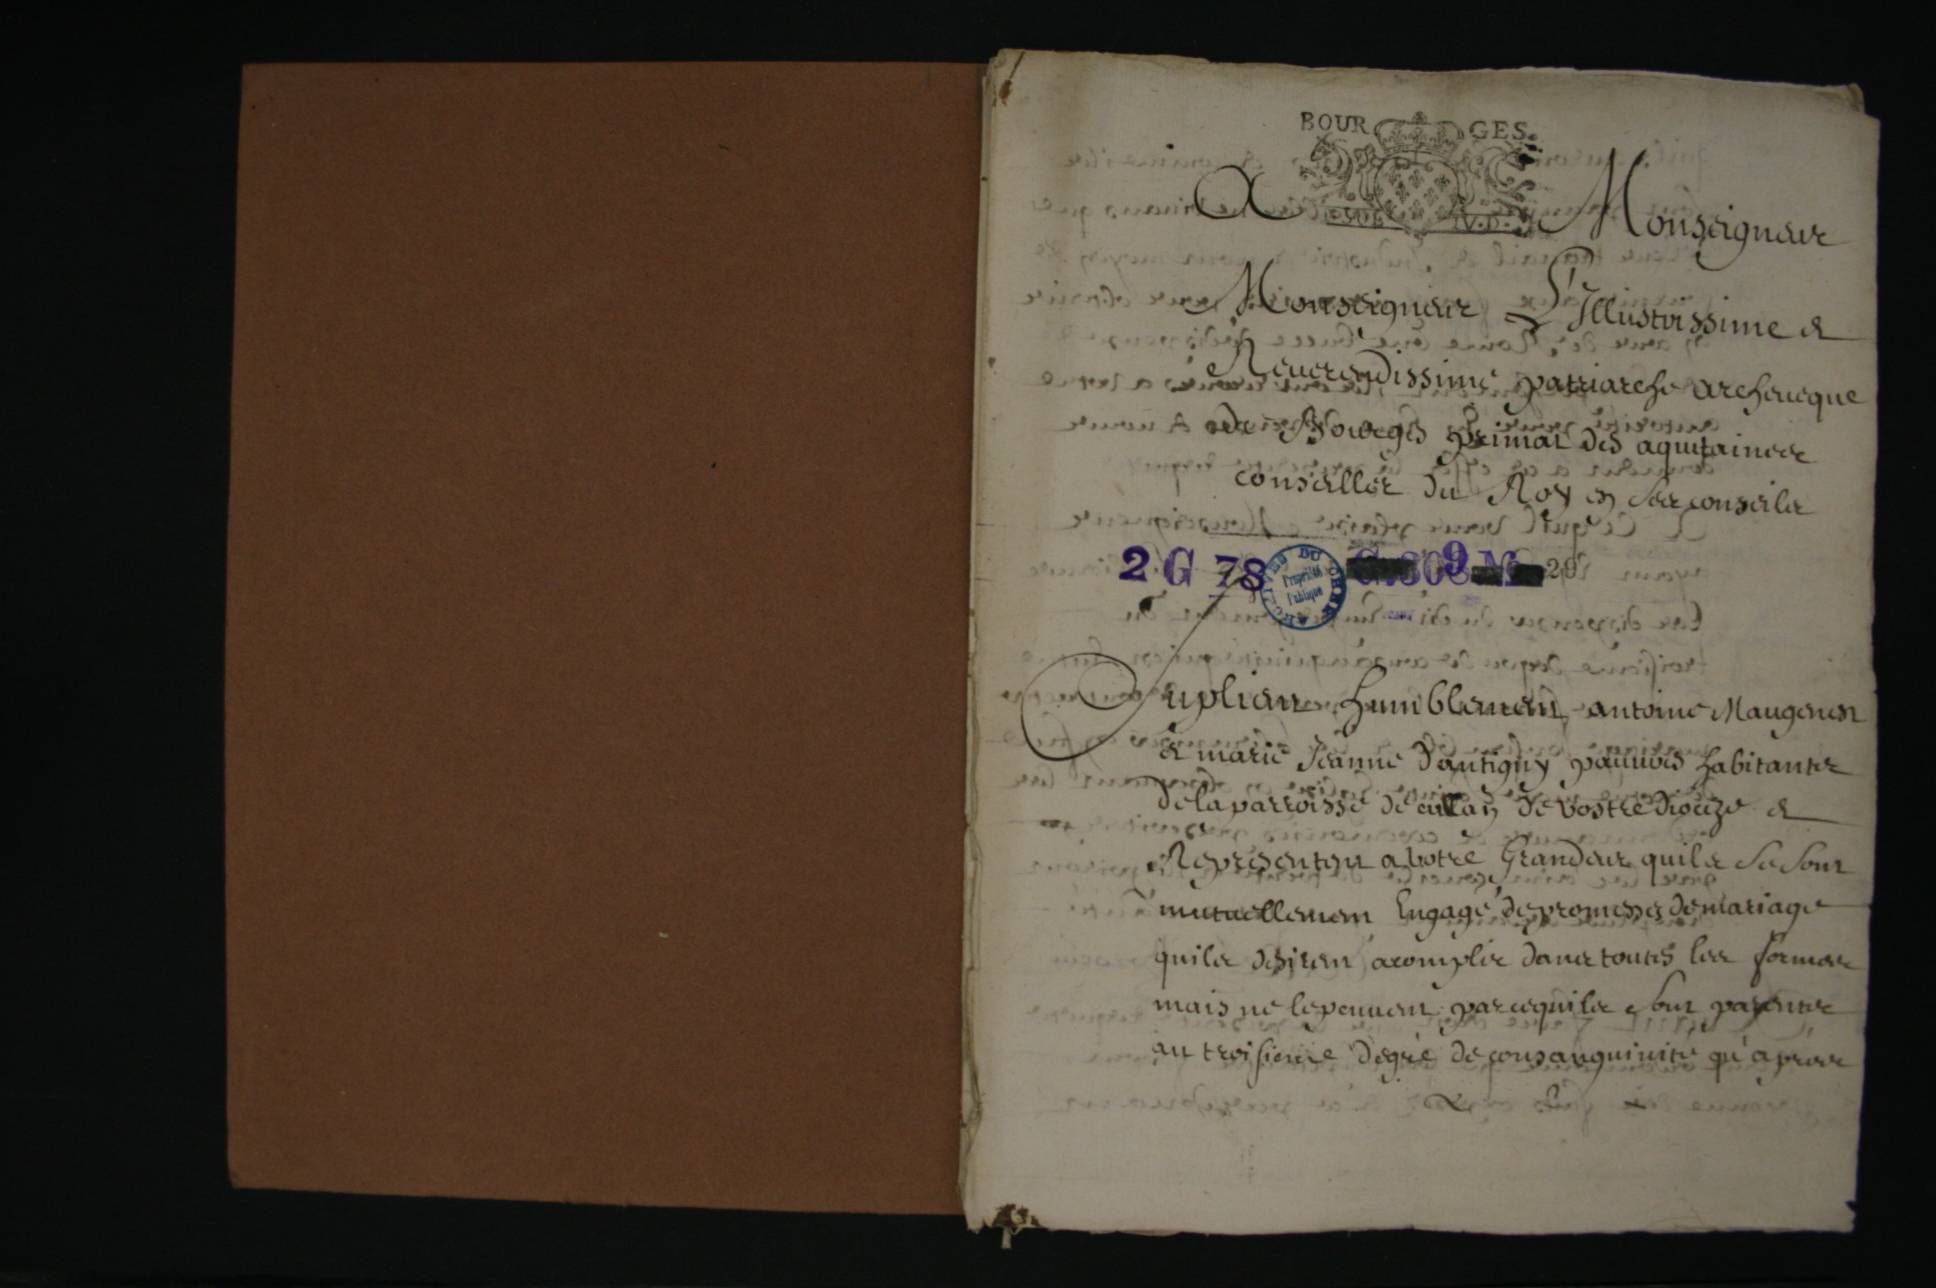 BOUR GES
A Monseigneur
Monseigneur L'Illustrissime &
Reuerendissime patriarche archeueque
de Bourges primat des aquitaines
conseiller du Roy en ses conseils
2 G 78 ARCHIVES DU CHER Propriété Publique 9 20
Suplient humblement antoine Maugenest
& marie Jeanne Dantigny pauures habitants
de la parroisse de culan de vostre dioceze &
Represente a votre Grandeur quils se sont
mutuellement Engagé de promesses de mariage
quils desirent acomplir dans toutes les formes
mais ne le peuuent parcequils sont parents
au troisieme degré de consanguinité qu'apres